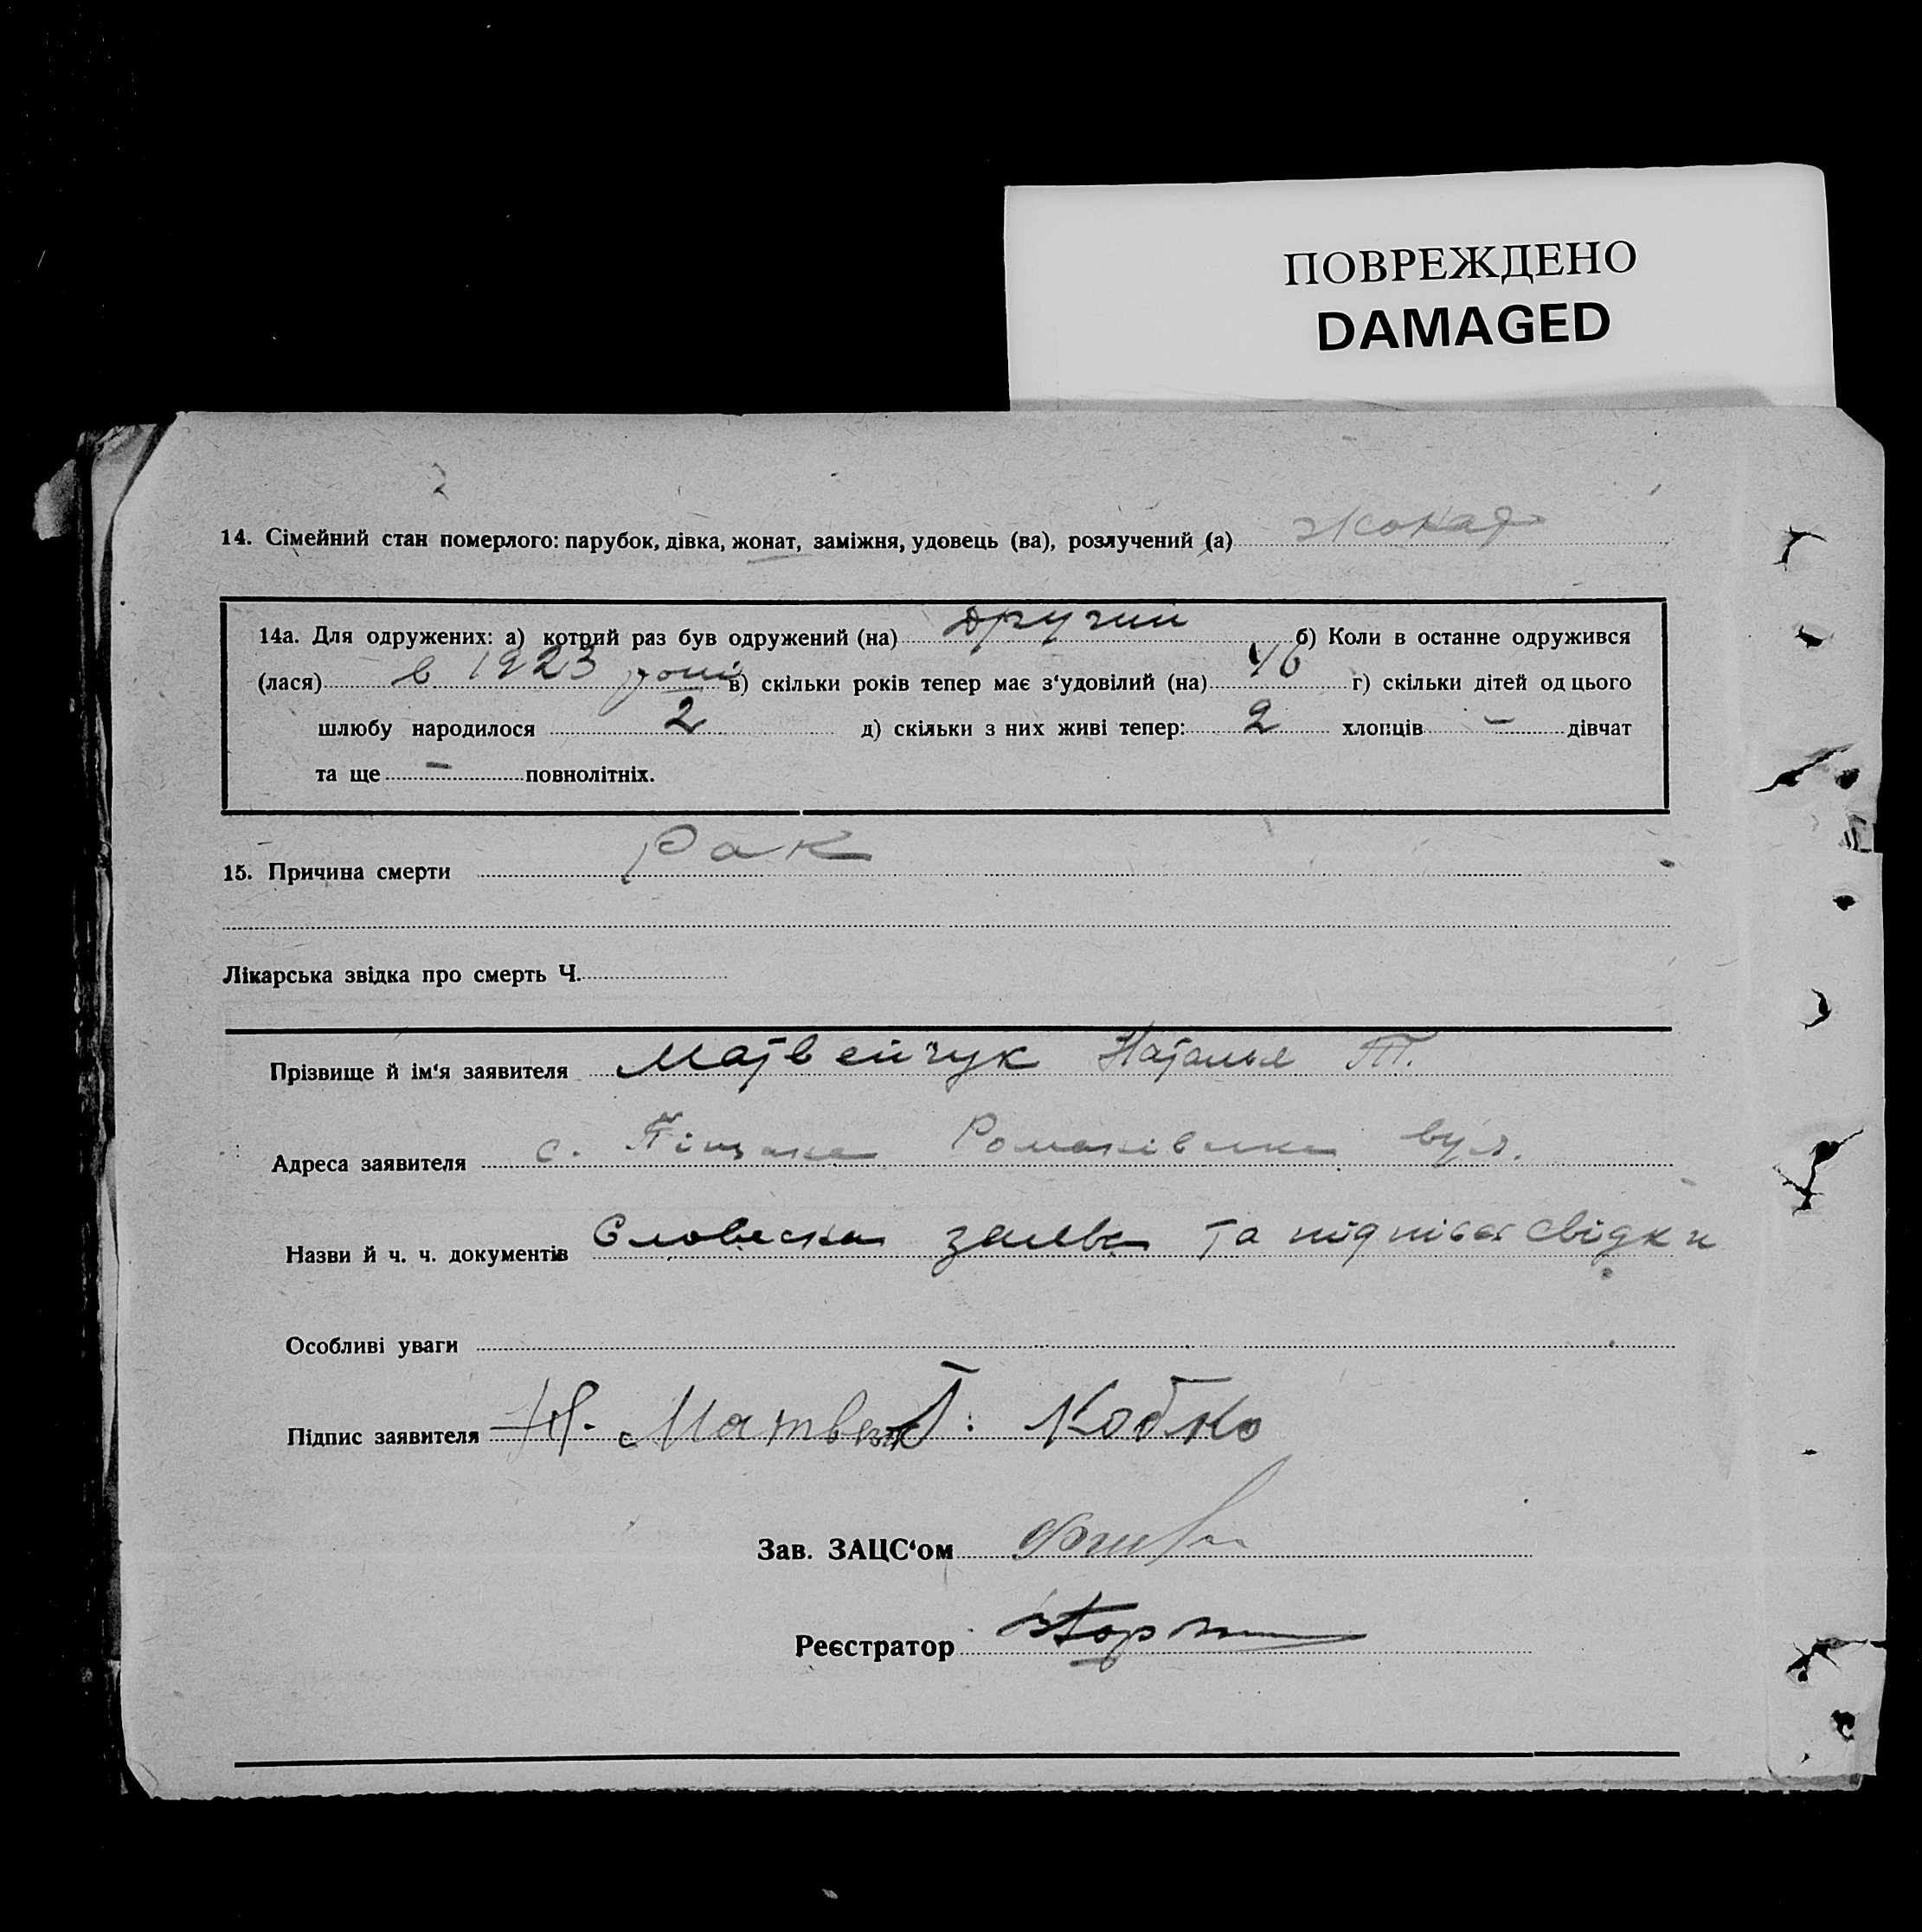 ПОВРЕЖДЕНО
DAMAGED
14. Сімейний стан померлого: парубок, дівка, жонат, заміжня, удовець (ва), розлучений (а) жонат
14а. Для одружених: а) котрий раз був одружений (на) другий б) Коли в останнє одружився
(лася) в 1923 році в) скільки років тепер має з‘удовілий (на) 46 г) скільки дітей од цього
шлюбу народилося 2 д) скільки з них живі тепер: 2 хлопців – дівчат
та ще – повнолітніх.
15. Причина смерти Рак
Лікарська звідка про смерть Ч.
Прізвище й ім‘я заявителя Матвейчук Наталья Т.
Адреса заявителя с. Піщана Романівська вул.
Назви й ч. ч. документів Словесна заява та підпісь свідки
Особливі уваги
Підпис заявителя Н. Матвей Т. Кобко
Зав. ЗАЦС‘ом
Реєстратор